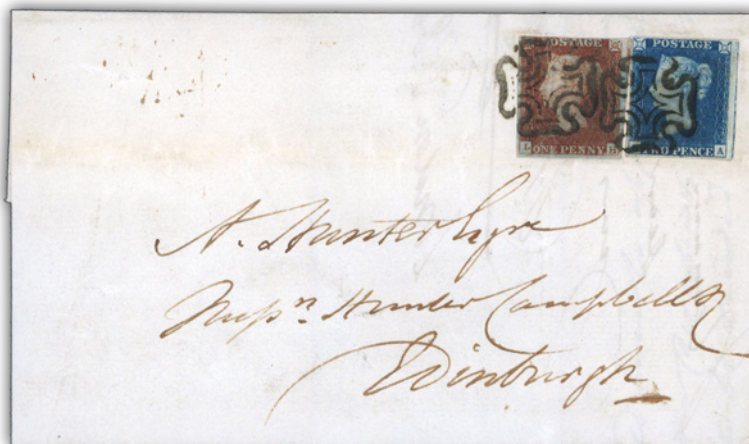 POSTAGE
ONE PENNY
L
POSTAGE
PENCE
A
A. Hunter Esqre
Hunter Campbell &
Edinburgh